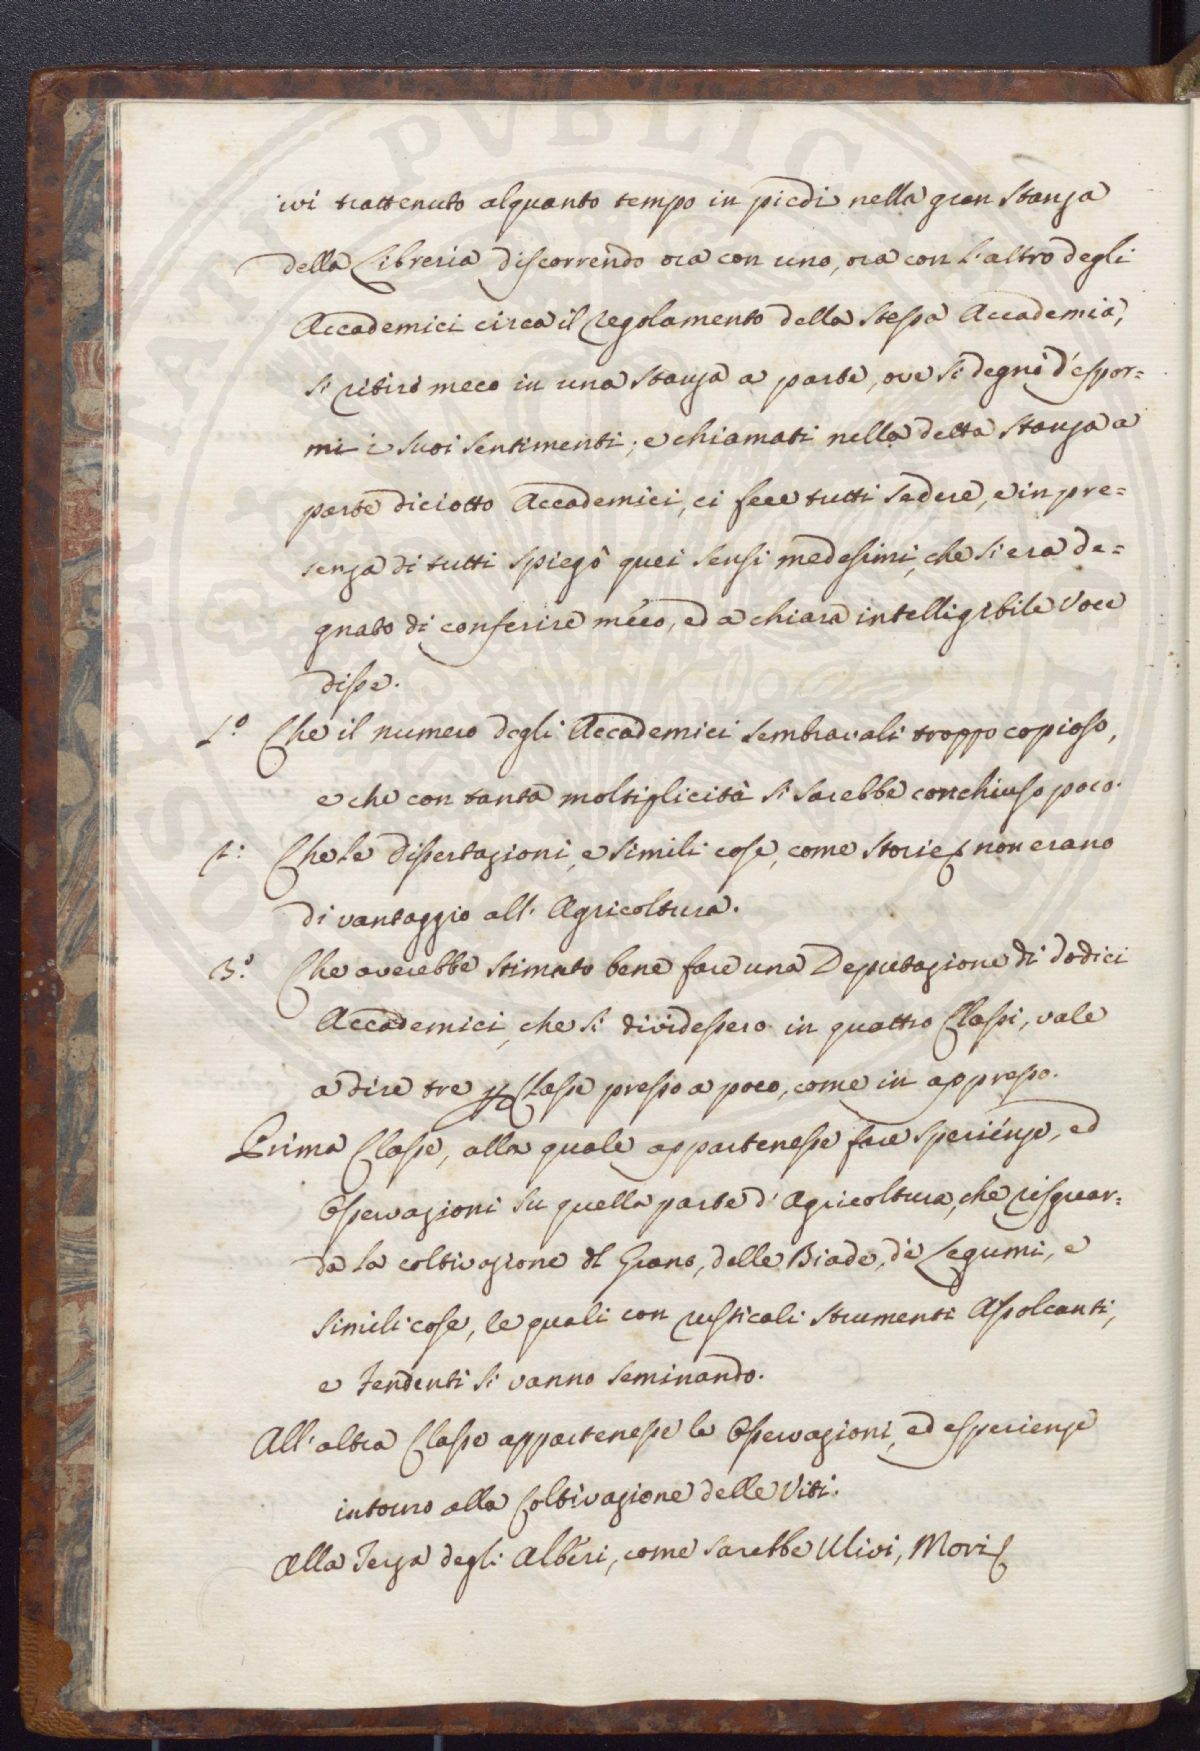 ivi trattenuto alquanto tempo in piedi nella gran Stanza
della Libreria discorrendo ora con uno, ora con l'altro degli
Accademici circa il regolamento della stessa Accademia,
si ritirò meco in una Stanza a parte, ove si degnò d'espor=
mi i suoi sentimenti; e chiamati nella detta Stanza a
parte diciotto Accademici, ci fece tutti sedere, e in pre=
senza di tutti spiegò quei sensi medesimi, che si era de=
gnato di conferire meco, ed a chiara intelligibile voce
disse.
1.º Che il numero degli Accademici sembravali troppo copioso,
e che con tanta moltiplicità si sarebbe conchiuso poco.
2: Che le dissertazioni, e simili cose, come storie non erano
di vantaggio all'Agricoltura.
3.º Che averebbe stimato bene fare una Deputazione di dodici
Accademici, che si dividessero in quattro Classi, vale
a dire tre Classe presso a poco, come in appresso.
Prima Classe, alla quale appartenesse fare sperienze, ed
Osservazioni su quella parte d'Agricoltura, che risguar=
da la coltivazione dl Grano, delle Biade, dè Legumi, e
simili cose, le quali con rusticali strumenti Assolcanti,
e Fendenti si vanno seminando.
All'altra Classe appartenesse le Osservazioni, ed esperienze
intorno alla Coltivazione delle Viti.
Alla Terza degli Alberi, come sarebbe Ulivi, Mori